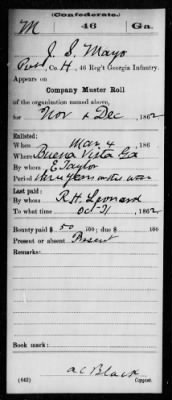 (Confederate.)
M 46 Ga.
J. S. Mayo
Pvt, Co. H, 46 Reg't Georgia Infantry.
Appears on
Company Muster Roll
of the organization named above,
for Nov & Dec, 1862
Enlisted:
When Mar 4, 186
Where Buena Vista Ga
By whom E Taylor
Period three years or the war
Last paid:
By whom R. H. Leonard
To what time Oct 31, 1862
Bounty paid $ 50 /100; due $ /100
Present or absent Present
Remarks:
Book mark:
A C Black
(642) Copyist.